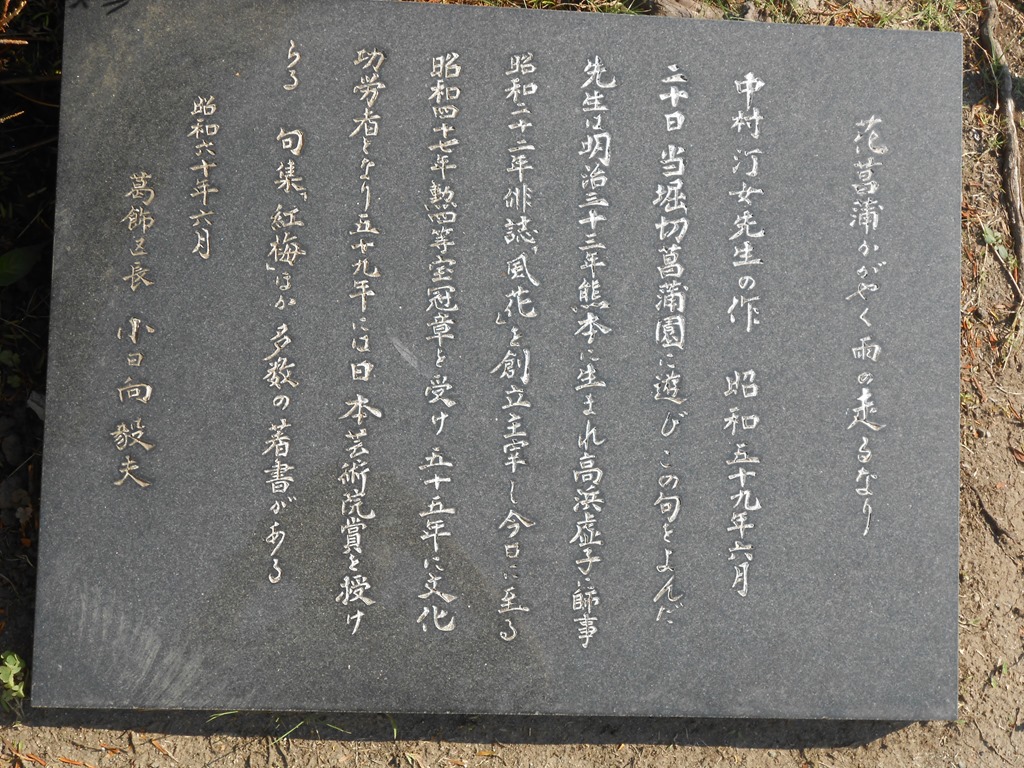 花菖蒲かがやく雨の走るなり
中村汀女先生の作　昭和五十九年六月
二十日当堀切菖蒲園に遊びこの句をよんだ
先生は明治三十三年熊本に生まれ高浜虚子に師事
昭和二十二年俳誌「風花」を創立主宰し今日に至る
昭和四十七年勲四等宝冠章を受け五十五年に文化
功労者となり五十九年には日本芸術院賞を授け
らる　句集「紅梅」ほか多数の著書がある
昭和六十年六月
葛飾区長　小日向毅夫